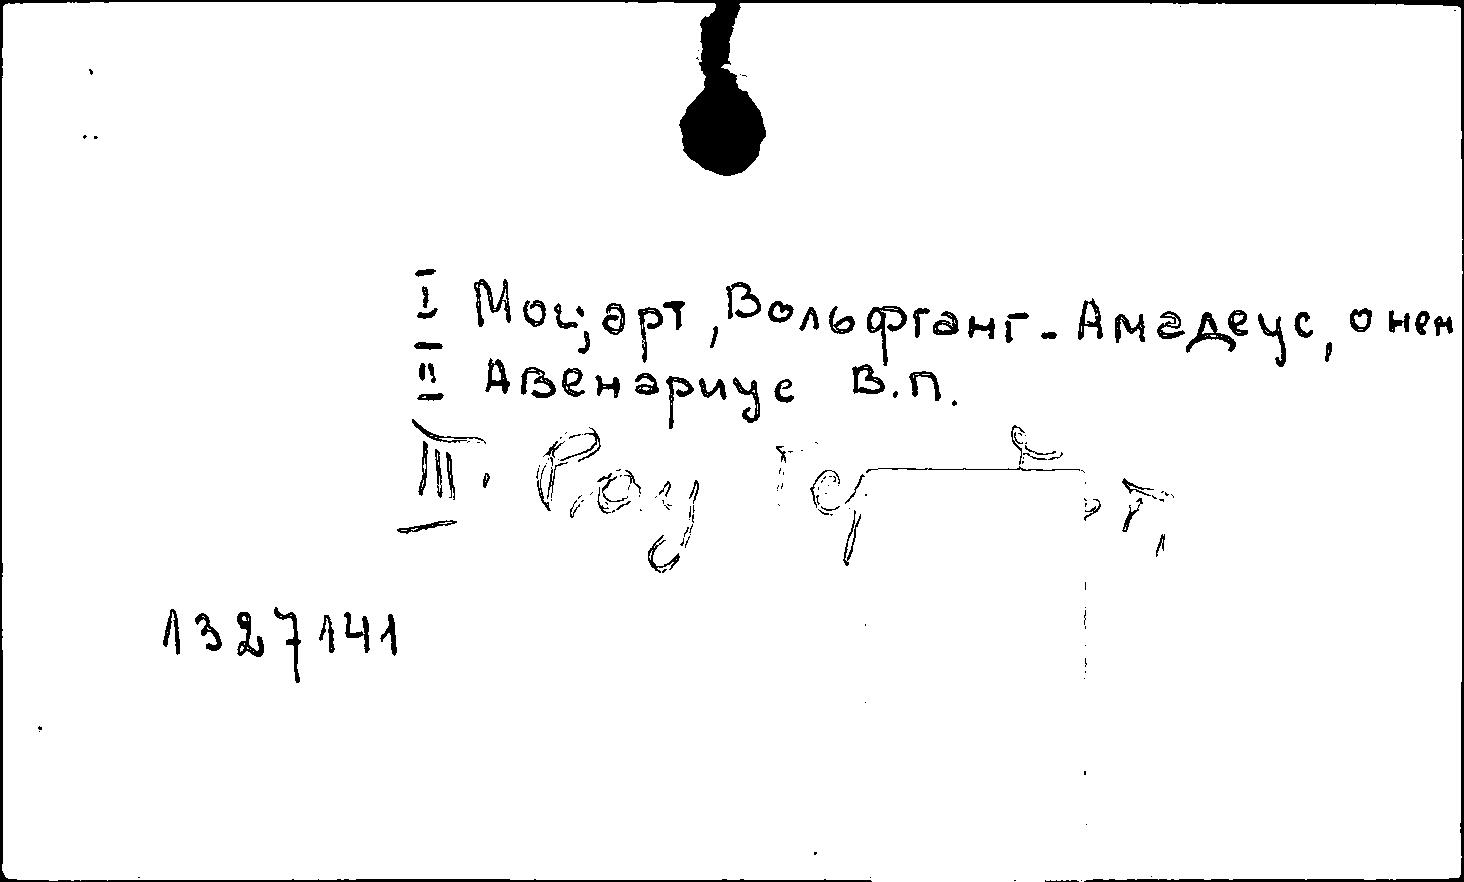 I Моцарт, Вольфганг-Амадеус, о нем
II Авенариус В.П.
III. Рау
1327141